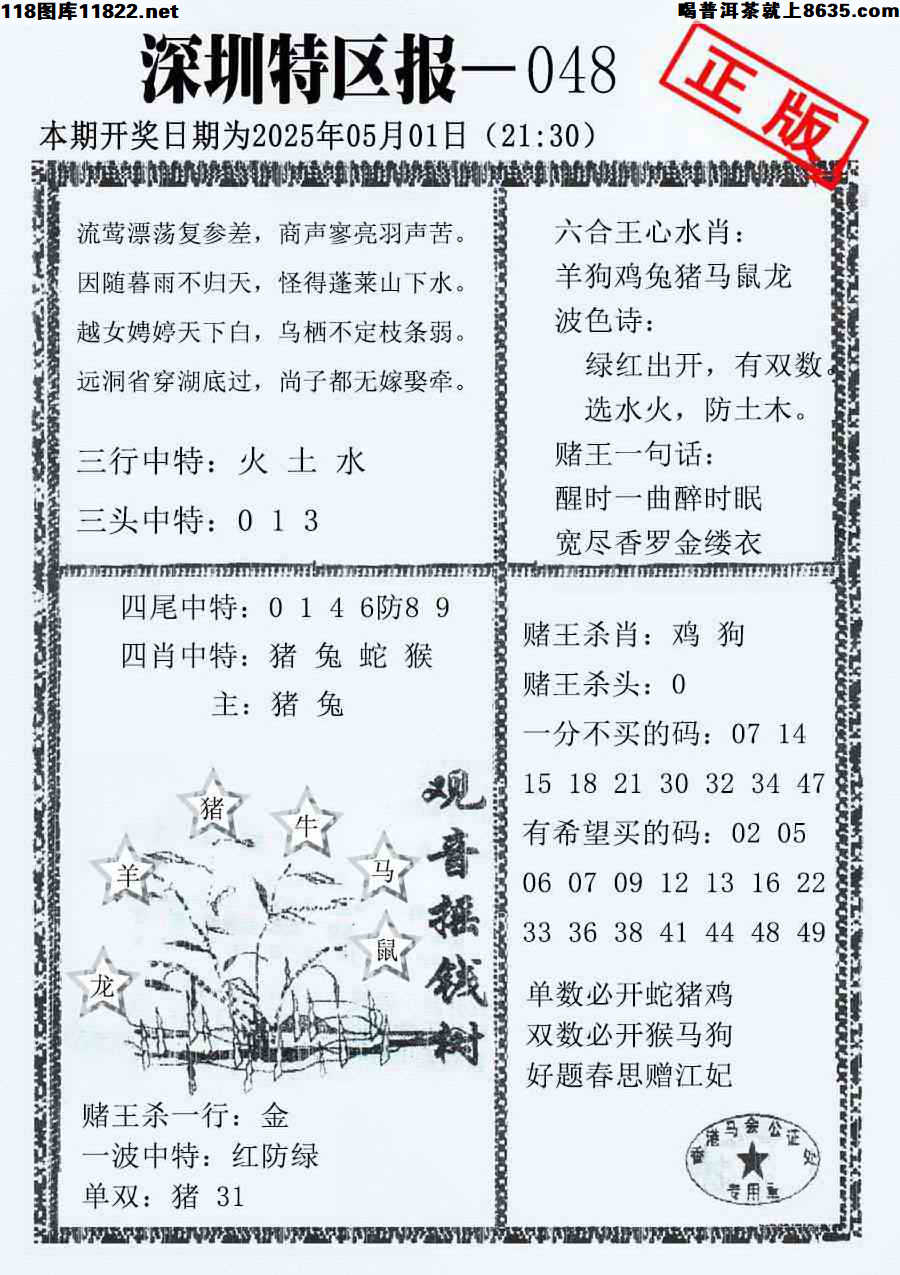 118图库11822.net
喝普洱茶就上8635.com
深圳特区报－048
正版
本期开奖日期为2025年05月01日（21:30）
流莺漂荡复参差，商声寥亮羽声苦。
因随暮雨不归天，怪得蓬莱山下水。
越女娉婷天下白，乌栖不定枝条弱。
远洞省穿湖底过，尚子都无嫁娶牵。
三行中特：火 土 水
三头中特：0 1 3
六合王心水肖：
羊狗鸡兔猪马鼠龙
波色诗：
绿红出开，有双数。
选水火，防土木。
赌王一句话：
醒时一曲醉时眠
宽尽香罗金缕衣
四尾中特：0 1 4 6防8 9
四肖中特：猪 兔 蛇 猴
主：猪 兔
猪
牛
羊
马
鼠
龙
观音摇钱树
赌王杀一行：金
一波中特：红防绿
单双：猪 31
赌王杀肖：鸡 狗
赌王杀头：0
一分不买的码：07 14
15 18 21 30 32 34 47
有希望买的码：02 05
06 07 09 12 13 16 22
33 36 38 41 44 48 49
单数必开蛇猪鸡
双数必开猴马狗
好题春思赠江妃
香港马会公证处
专用章